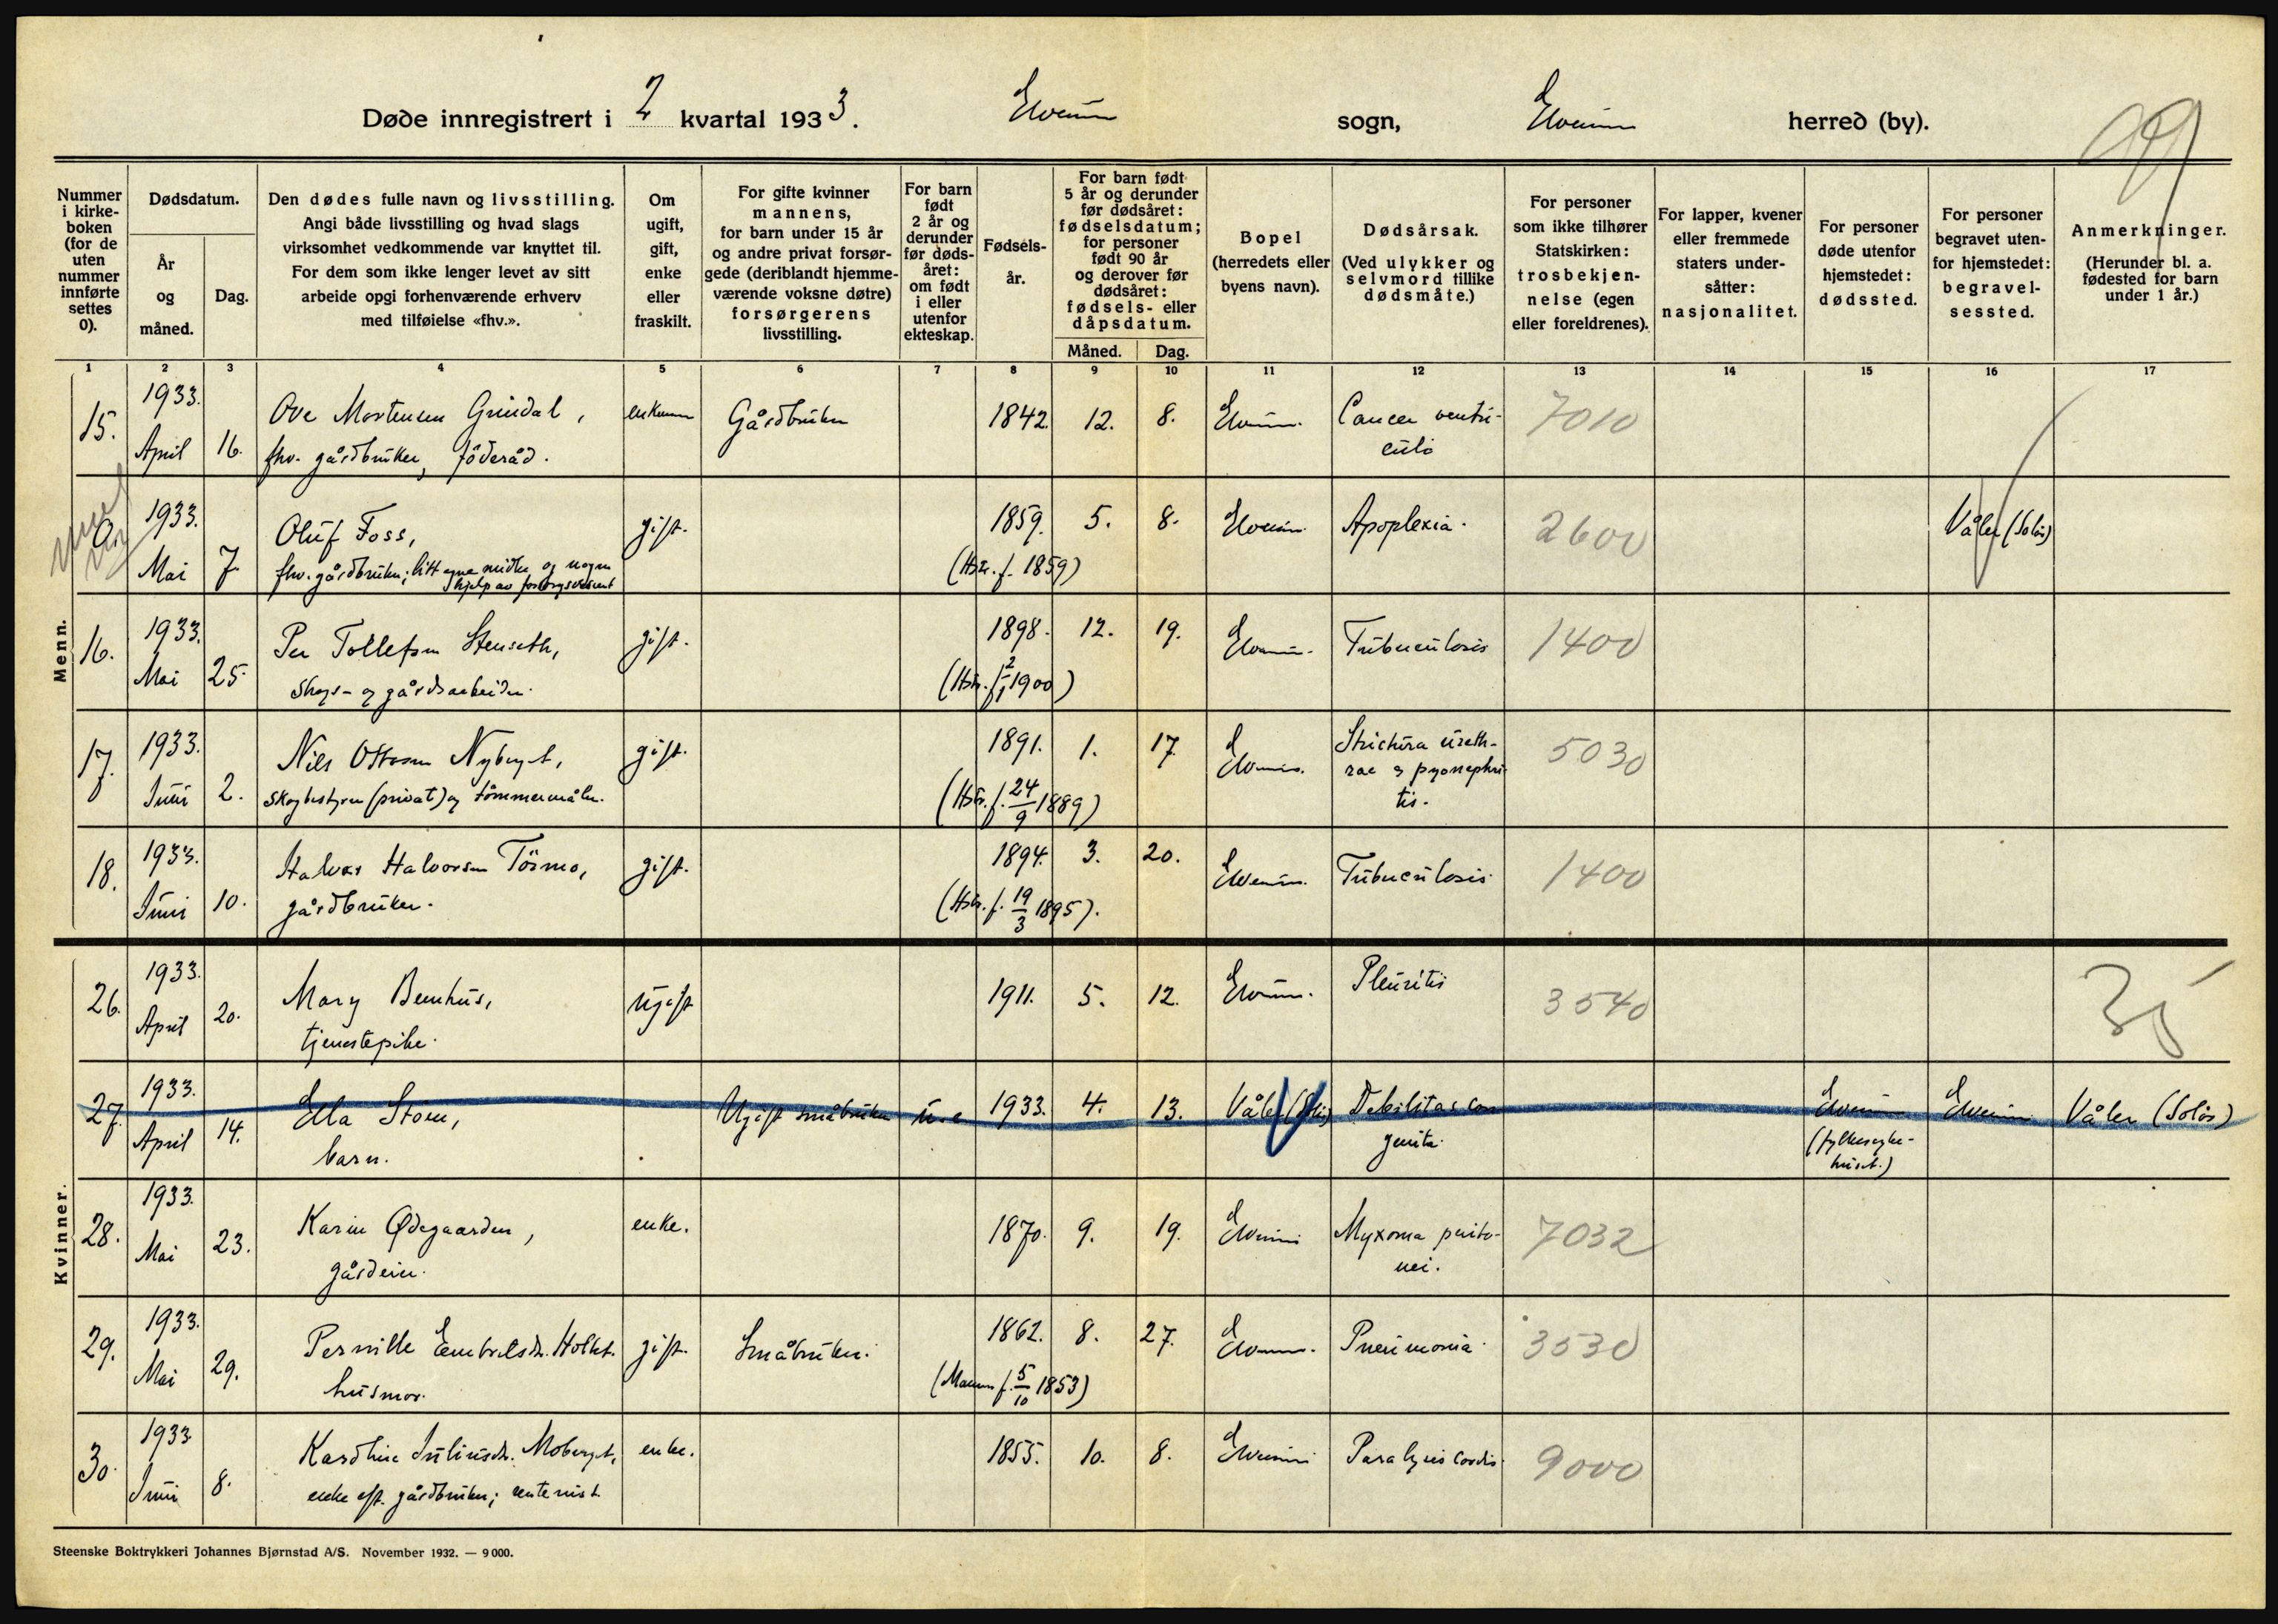 Døde innregistrert i 2 kvartal 1933. Elverum sogn, Elverum herred (by).
Nummer i kirke-boken (for de uten nummer innførte settes 0).
Dødsdatum.
År og måned.
Dag.
Den dødes fulle navn og livsstilling.
Angi både livsstilling og hvad slags
virksomhet vedkommende var knyttet til.
For dem som ikke lenger levet av sitt
arbeide opgi forhenværende erhverv
med tilføielse «fhv.».
Om ugift, gift, enke eller fraskilt.
For gifte kvinner
mannens,
for barn under 15 år
og andre privat forsør-
gede (deriblandt hjemme-
værende voksne døtre)
forsørgerens
livsstilling.
For barn født 2 år og derunder før døds-året: om født i eller utenfor ekteskap.
Fødsels-år.
For barn født
5 år og derunder
før dødsåret:
fødselsdatum;
for personer
født 90 år
og derover før
dødsåret:
fødsels- eller
dåpsdatum.
Måned. Dag.
Bopel
(herredets eller
byens navn).
Dødsårsak.
(Ved ulykker og
selvmord tillike
dødsmåte.)
For personer
som ikke tilhører
Statskirken:
trosbekjen-
nelse (egen
eller foreldrenes).
For lapper, kvener
eller fremmede
staters under-
såtter:
nasjonalitet.
For personer
døde utenfor
hjemstedet:
dødssted.
For personer
begravet uten-
for hjemstedet:
begravel-
sessted.
Anmerkninger.
(Herunder bl. a.
fødested for barn
under 1 år.)
1 2 3 4 5 6 7 8 9 10 11 12 13 14 15 16 17
Menn.
15. 1933. April 16. Ove Mortensen Grindal, enkemann Gårdbruker 1842. 12. 8. Elverum. Cancer ventri-
culi 7010
fhv. gårdbruker, föderåd.
1933. Mai 7. Oluf Foss, gift. 1859. 5. 8. Elverum Apoplexia. 2600 Våler (Solör)
fhv. gårdbruker; litt egne midler og nogen
hjelp av forsorgsvesenet
(Hstr. f. 1859)
16. 1933. Mai 25 Per Tollefsen Stenseth, gift. 1898. 12. 19. Elverum. Tuberculosis 1400
Skogs- og gårdsarbeider.
(Hstr. f. 2/1 1900)
17. 1933. Juni 2. Nils Ottosen Nyberget, gift. 1891. 1. 17 Elverum. Strictura ureth-
rae & pyonephri-
tis. 5030
skogbestyrer (privat) og tömmermåler.
(Hstr. f. 24/9 1889)
18. 1933. Juni 10. Halvor Halvorsen Törmo, gift. 1894. 3. 20. Elverum. Tuberculosis. 1400
gårdbruker.
(Hstr. f. 19/3 1895).
Kvinner.
26. 1933. April 20. Mary Bernhus, ugift 1911. 5. 12. Elverum. Pleuritis 3540
tjenestepike.
27. 1933. April 14. Ella Storm, Ugift småbruker u.e 1933. 4. 13. Våler (Solör) Debilitas con
genita. Elverum
(fylkessyke-
huset.) Elverum Våler (Solör)
barn.
28. 1933. Mai 23. Karin Ødegaarden, enke. 1870. 9. 19. Elverum Myxoma perito-
nei. 7032
gårdeier.
29. 1933. Mai 29. Pernille Embretsdr. Holtet. gift. Småbruker. 1862. 8. 27. Elverum. Pneumonia. 3530
husmor.
(Mannen f. 5/10 1853)
30. 1933. Juni 8. Karothine Juliusdr. Moberget, enke. 1855. 10. 8. Elverum Paralysis cordis. 9000
enke eft. gårdbruker; rentenist
Steenske Boktrykkeri Johannes Bjørnstad A/S. November 1932. — 9000.